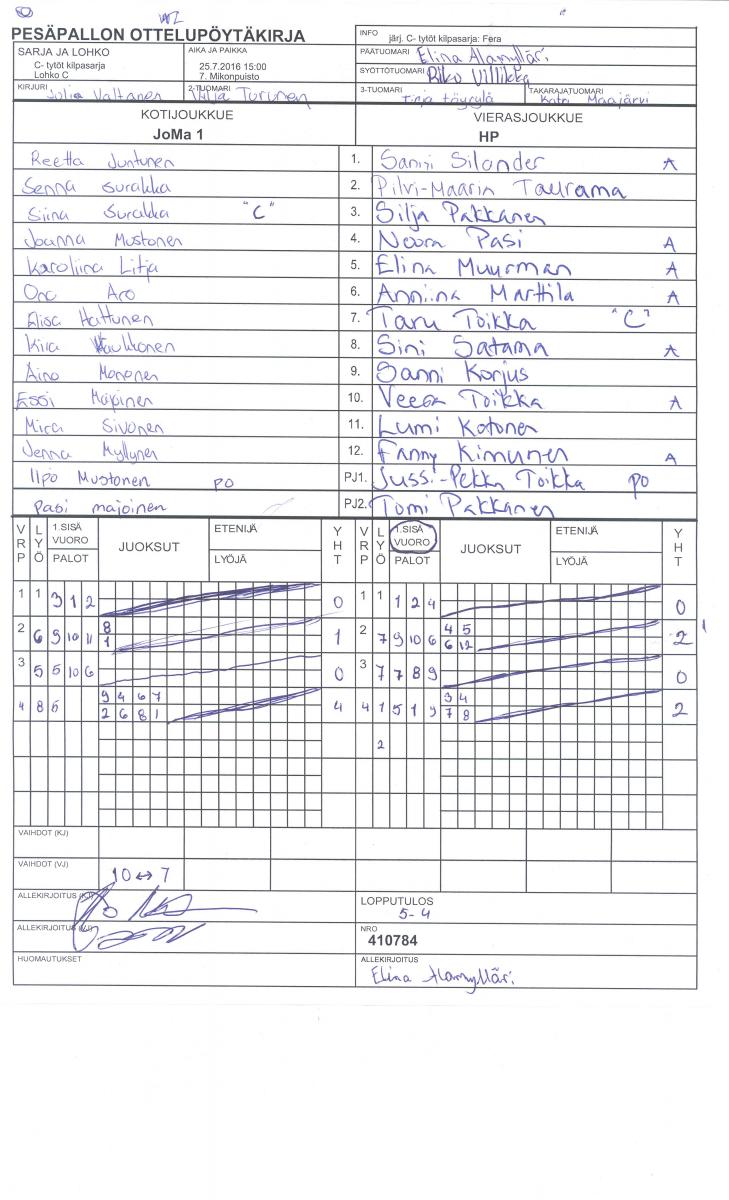 PESÄPALLON OTTELUPÖYTÄKIRJA
SARJA JA LOHKO
C- tytöt kilpasarja
Lohko C
AIKA JA PAIKKA
25.7.2016 15:00
7. Mikonpuisto
INFO
järj. C- tytöt kilpasarja: Fera
PÄÄTUOMARI Elina Alamylläri
SYÖTTÖTUOMARI Riko Villikka
KIRJURI Julia Valtanen
2-TUOMARI Vilja Turunen
3-TUOMARI Tinja töyrylä
TAKARAJATUOMARI Katri Maajärvi
KOTIJOUKKUE
JoMa 1
VIERASJOUKKUE
HP
Reetta Juntunen 1. Sanni Silander A
Senna Surakka 2. Pilvi-Maarin Taurama
Siina Surakka "C" 3. Silja Pakkanen
Joanna Mustonen 4. Noora Pasi A
Karoliina Litja 5. Elina Muurman A
Ona Aro 6. Anniina Marttila A
Elisa Hattunen 7. Taru Toikka "C"
Kiira 8. Sini Satama A
Aino Mononen 9. Sanni Korjus
Essi Majoinen 10. Veera Toikka A
Mira Sivonen 11. Lumi Kotonen
Jenna Myllynen 12. Fanny Kimunen A
Ilpo Mustonen PO PJ1. Jussi-Pekka Toikka PO
Pasi majoinen PJ2. Tomi Pakkanen
VRP LYÖ 1.SISÄ VUORO PALOT JUOKSUT ETENIJÄ LYÖJÄ YHT VRP LYÖ 1.SISÄ VUORO PALOT JUOKSUT ETENIJÄ LYÖJÄ YHT
1 1 3 1 2 0 1 1 1 2 4 0
2 6 9 10 11 8 1 1 2 7 9 10 6 4 5 6 12 2
3 5 5 10 6 0 3 7 7 8 9 0
4 8 5 9 4 6 7 2 6 8 1 4 4 1 5 1 9 3 4 7 8 2
2
VAIHDOT (KJ)
VAIHDOT (VJ)
10 ↔ 7
ALLEKIRJOITUS (KJ)
LOPPUTULOS
5-4
ALLEKIRJOITUS (VJ)
NRO
410784
HUOMAUTUKSET
ALLEKIRJOITUS
Elina Alamylläri